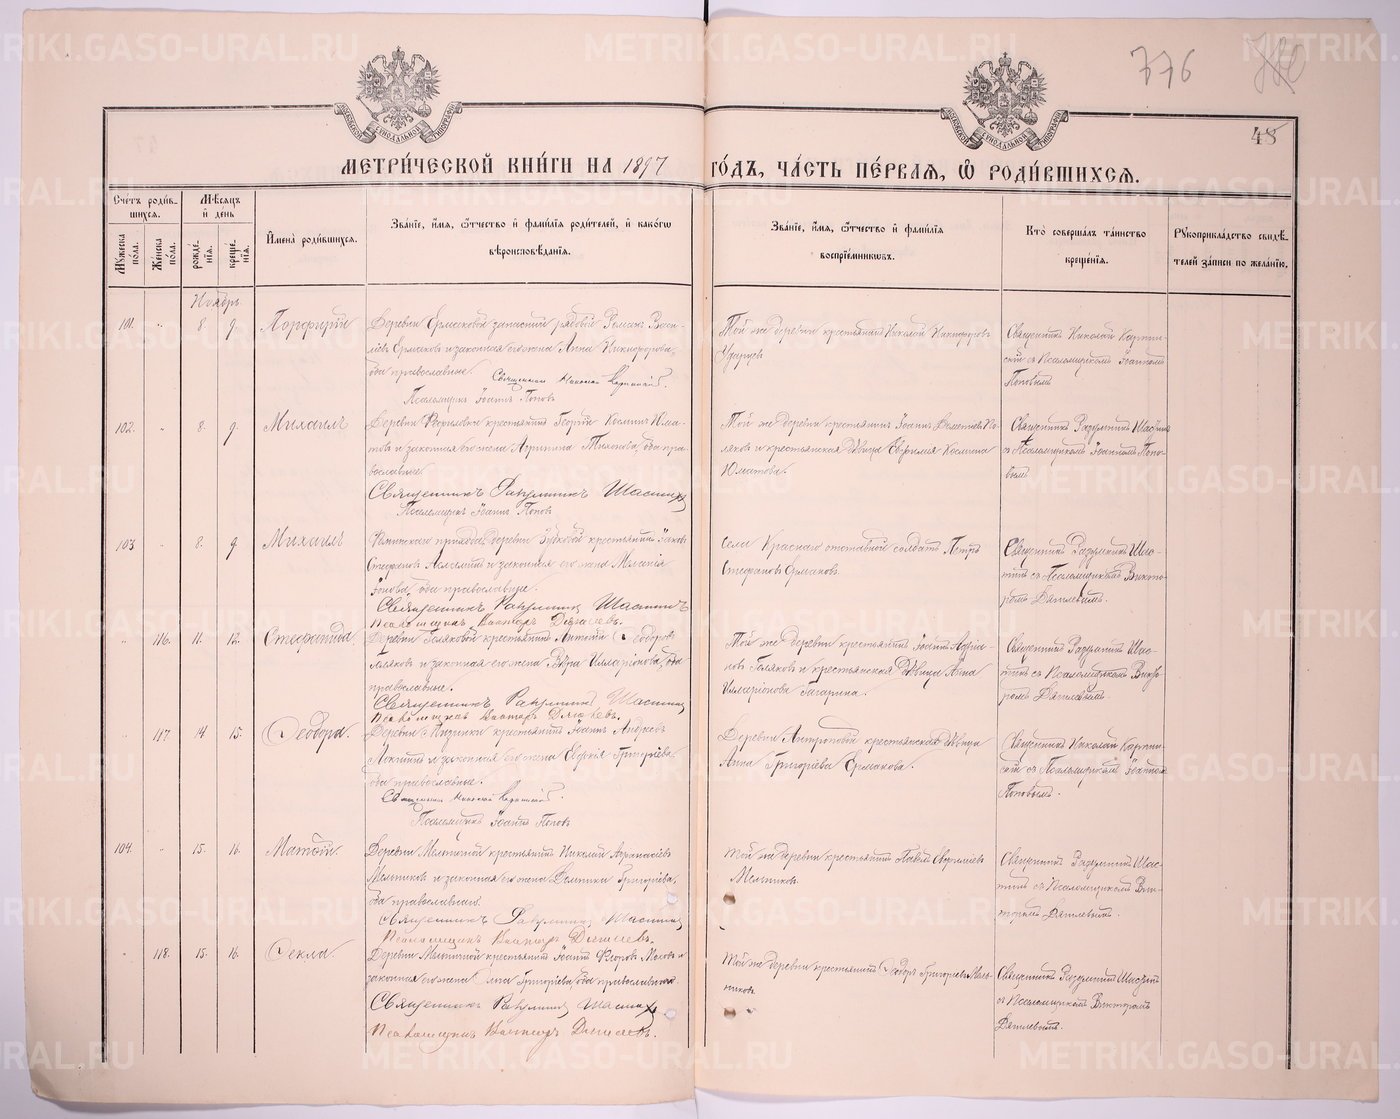 776
48
МОСКОВСКОЙ СѴНОДАЛЬНОЙ ТИПОГРАФІИ
МОСКОВСКОЙ СѴНОДАЛЬНОЙ ТИПОГРАФІИ
МЕТРИ́ЧЕСКОЙ КНИ́ГИ НА 1897 ГО́ДЪ, ЧА́СТЬ ПЕ́РВАЯ, Ѽ РОДИ́ВШИХСЯ.
Счетъ роди́в-
шихся.
Му́жеска пола.
Же́нска пола.
Мѣ́сяцъ
и҆ день
рожде́-
нїя.
креще́-
нїя.
И҆мена̀ роди́вшихся.
Зва́нїе, и҆́мя, ѻ҆́тчество и҆ фами́лїя роди́телей, и҆ како́гѡ
вѣроисповѣ́данїя.
Зва́нїе, и҆́мя, ѻ҆́тчество и҆ фами́лїя
воспрїе́мниковъ.
Кто̀ соверша́лъ та́инство
креще́нїя.
Рꙋкоприкла́дство свидѣ́-
телей за́писи по жела́нїю.
Ноябрь
101. " 8. 9. Порфирій
Деревни Ермаковой запасный рядовой Романъ Васи-
льевъ Ермаковъ и законная его жена Анна Никифорова,
оба православные. Священникъ Николай
Псаломщикъ Іоаннъ Поповъ
Той же деревни крестьянинъ Николай Никифоровъ
Ударцевъ
Священникъ Николай
съ Псаломщикомъ Іоанномъ
Поповымъ
102. " 8. 9. Михаилъ
Деревни крестьянинъ Георгій Косминъ Юма-
товъ и законная его жена Агрипина Тихонова, оба пра-
вославные.
Священникъ Разумникъ Шастинъ
Псаломщикъ Іоаннъ Поповъ
Той же деревни крестьянинъ Іоаннъ По-
ляковъ и крестьянская дѣвица Евфимія Космина
Юматова.
Священникъ Разумникъ Шастинъ
съ Псаломщикомъ Іоанномъ Попо-
вымъ
103 " 8. 9 Михаилъ
прихода, деревни крестьянинъ Іаковъ
Стефановъ и законная его жена Меланія
Іонова, оба православные.
Священникъ Разумникъ Шастинъ
Псаломщикъ Викторъ Дягилевъ.
села Краснаго отставной солдатъ Петръ
Стефановъ Ермаковъ.
Священникъ Разумникъ Шас-
тинъ съ Псаломщикомъ Викто-
ромъ Дягилевымъ.
" 116. 11. 12. Стефанида.
Деревни Голяковой крестьянинъ Антоній Ѳеодоровъ
Голяковъ и законная его жена Вѣра Илларіонова, оба
православные.
Священникъ Разумникъ Шастинъ
Псаломщикъ Викторъ Дягилевъ.
Той же деревни крестьянинъ Іоаннъ Адріа-
новъ Голяковъ и крестьянская дѣвица Анна
Илларіонова Гагарина.
Священникъ Разумникъ Шас-
тинъ съ Псаломщикомъ Викто-
ромъ Дягилевымъ.
" 117. 14 15. Ѳеодора.
Деревни крестьянинъ Іоаннъ Андреевъ
и законная его жена Евдокія Григоріева,
оба православные.
Священникъ Николай
Псаломщикъ Іоаннъ Поповъ
Деревни Антроповой крестьянская дѣвица
Анна Григоріева Ермакова.
Священникъ Николай
съ Псаломщикомъ Іоанномъ
Поповымъ.
104. " 15. 16. Матѳій.
Деревни Мельничной крестьянинъ Николай Аѳанасіевъ
Мельниковъ и законная его жена Домника Григоріева,
оба православные.
Священникъ Разумникъ Шастинъ
Псаломщикъ Викторъ Дягилевъ.
той же деревни крестьянинъ Павелъ Евфиміевъ
Мельниковъ.
Священникъ Разумникъ Шас-
тинъ съ Псаломщикомъ Вик-
торомъ Дягилевымъ.
" 118. 15. 16. Ѳекла.
Деревни Мельничной крестьянинъ Іоаннъ и
законная его жена Григоріева, оба православные
Священникъ Разумникъ Шастинъ
Псаломщикъ Викторъ Дягилевъ.
Той же деревни крестьянинъ Ѳедоръ Григоріевъ Мель-
никовъ.
Священникъ Разумникъ Шастинъ
съ Псаломщикомъ Викторомъ
Дягилевымъ.
METRIKI.GASO-URAL.RU